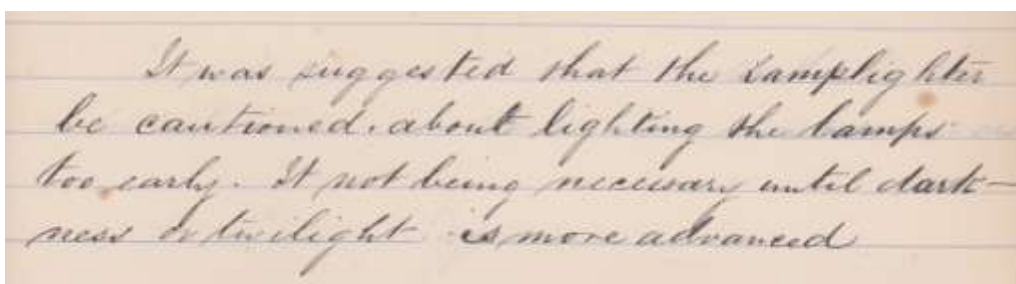 It was suggested that the Lamplighter
be cautioned about lighting the lamps
too early. It not being necessary until dark-
ness or twilight is more advanced